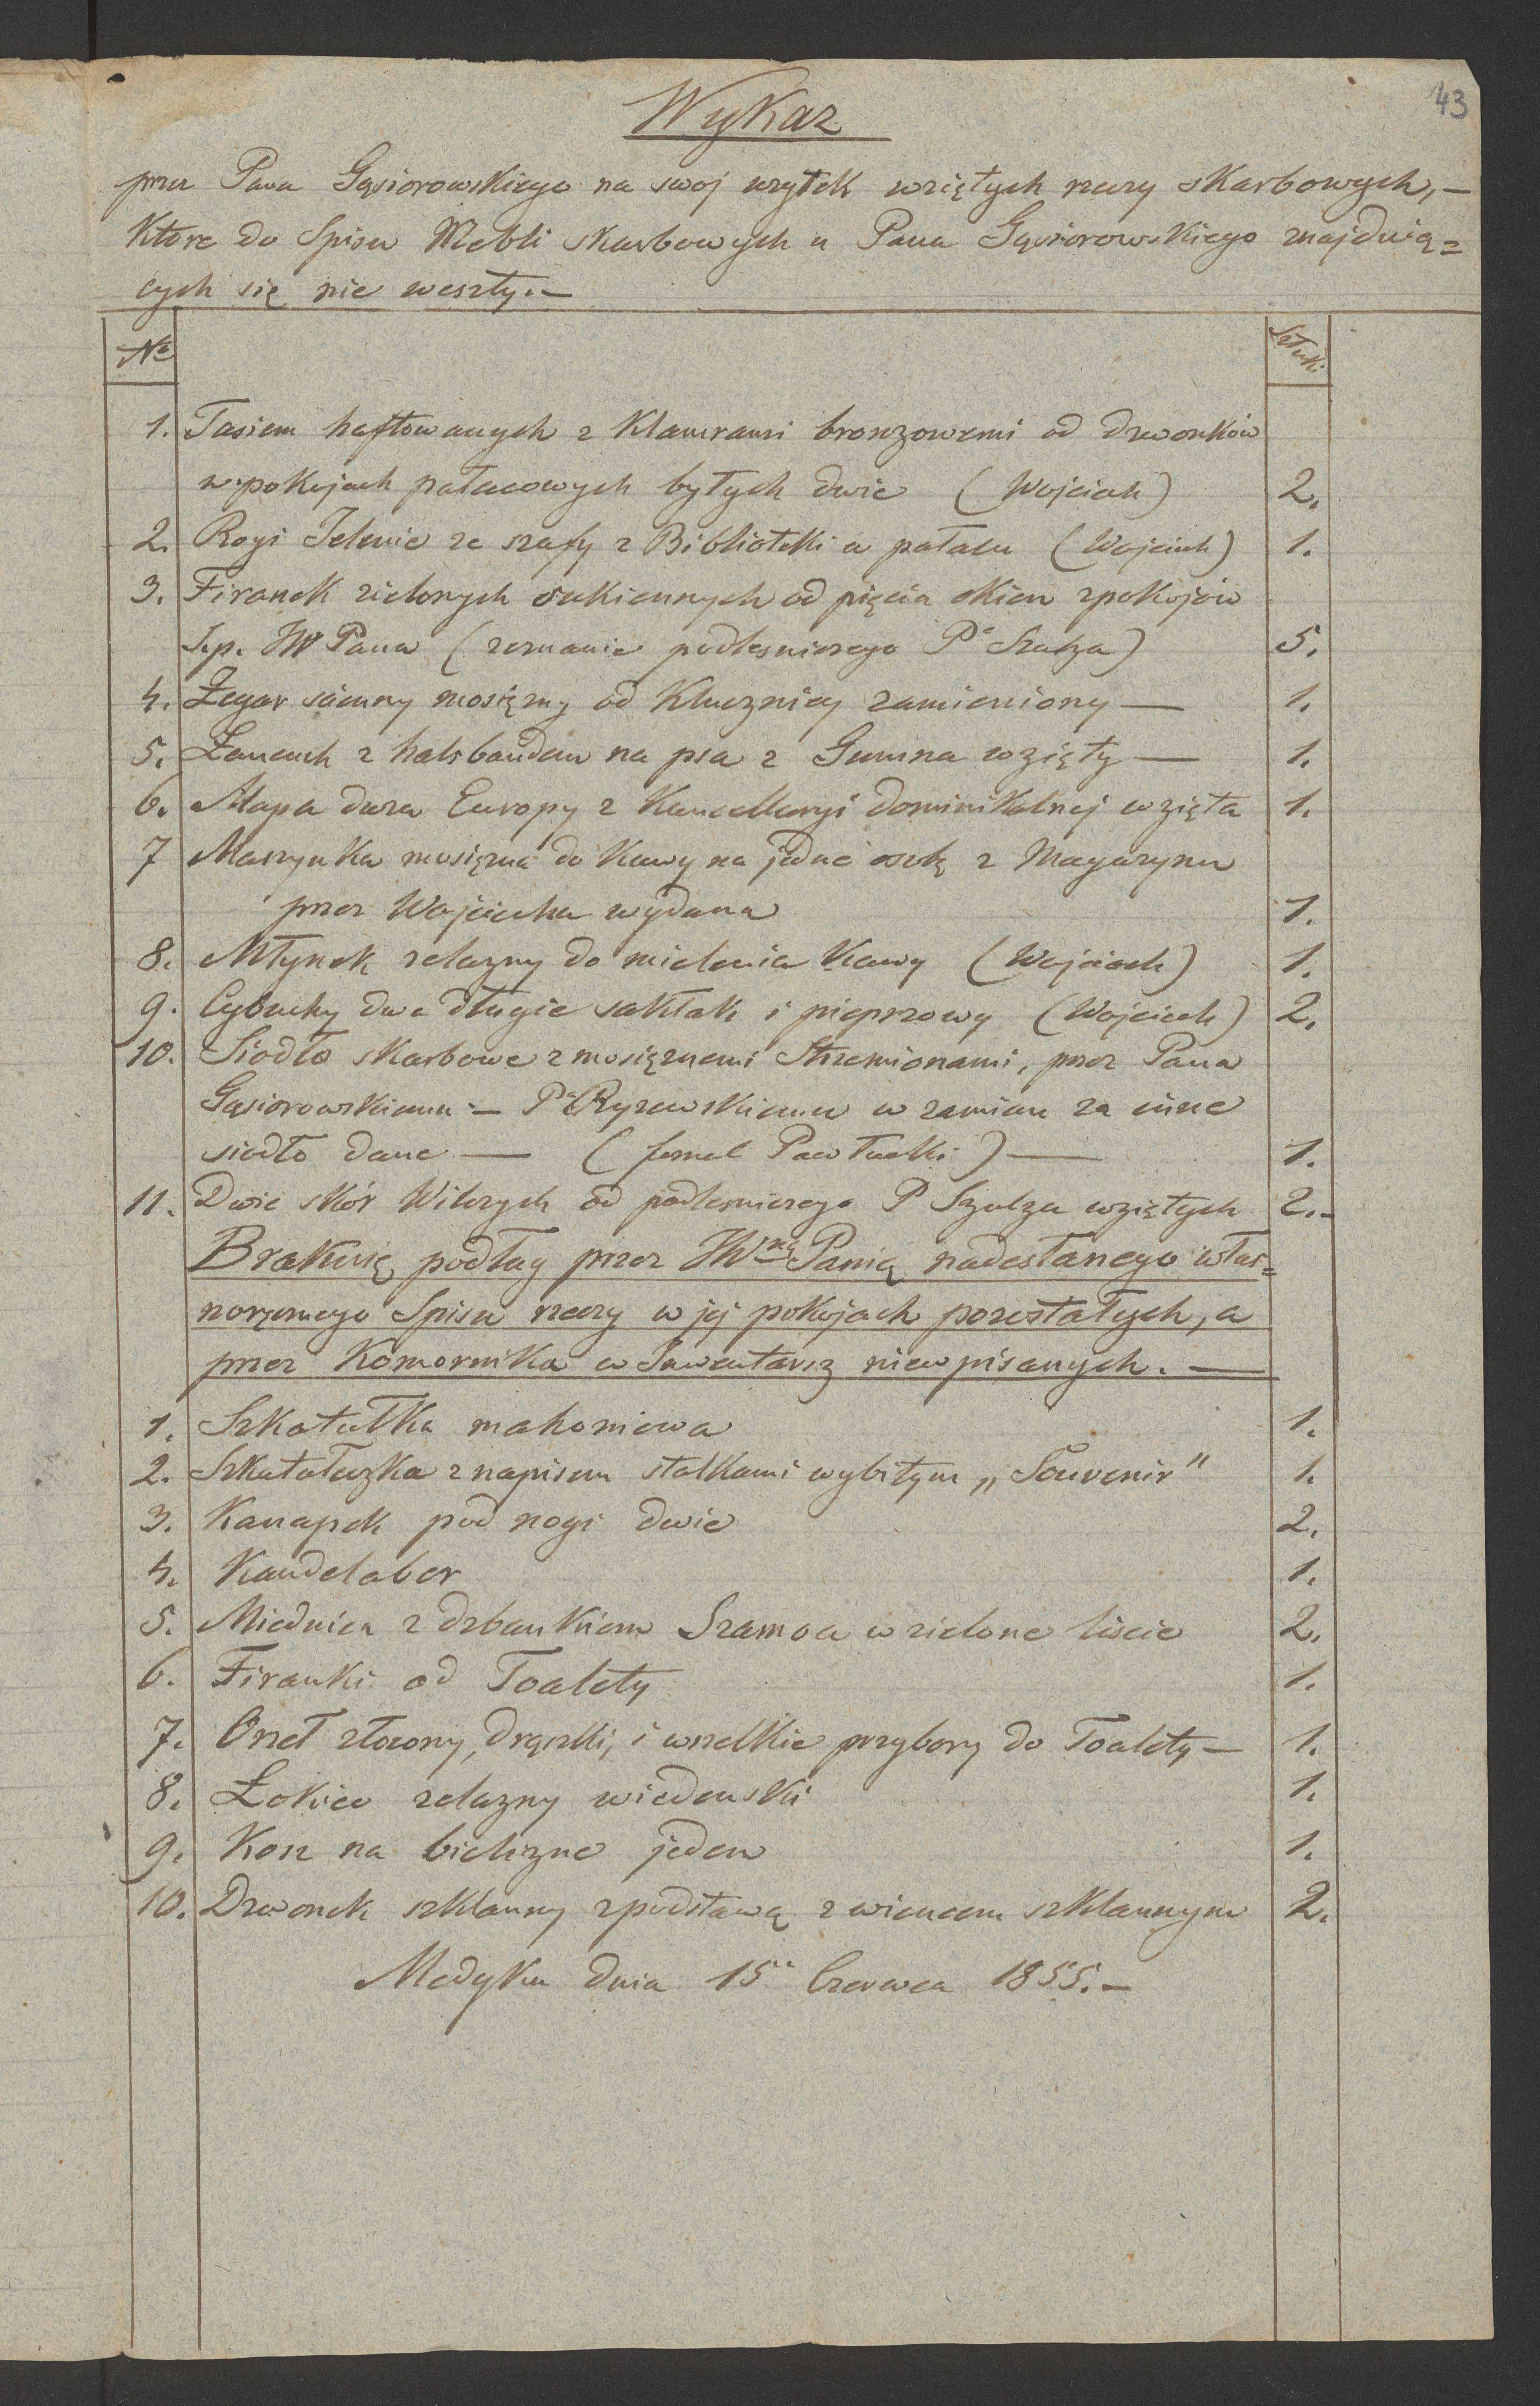 43
Wykaz
przez Pana Gąsiorowskiego na swoj uzytek wziętych rzeczy skarbowych, —
Które do Spisu Mebli skarbowych u Pana Gąsiorowskiego znajduią=
cych się nie weszły. —
No Sztuki
1. Tasiem haftowanych z Klamrami bronzowemi od dzwonków
w pokojach pałacowych byłych dwie (Wojciech) 2.
2. Rogi Jelenie ze szafy z Biblioteki w pałacu (Wojciech) 1.
3. Firanek zielonych sukiennych od pięcia okien z pokojów
S.p. JW Pana (zeznanie podlesniczego Pa Szulza) 5.
4. Zegar scienny mosięzny od Klucznicy zamieniony — 1.
5. Łancuch z halsbandem na psa z Gumna wzięty — 1.
6. Mapa duza Europy z Kancellaryi dominikalnej wzięta 1.
7 Maszynka mosięzna do Kawy na jedne osobę z Magazynu
przez Wojciecha wydana 1.
8. Młynek zelazny do mielenia Kawy (Wojciech) 1.
9. Cybuchy dwa długie sakłak i pieprzowy (Wojciech) 2.
10. Siodło skarbowe z mosięznemi Strzemionami, przez Pana
Gąsiorowskiemu — Pu Ryszewskiemu w zamian za inne
siodło dane — ( fornal Pawłucki ) — 1.
11. Dwie skór Wilczych od podlesniczego P Szulza wziętych 2. -
Brakuię podług przez JWną Panią nadesłanego włas=
noręcznego Spisu rzeczy w jej pokojach pozostałych, a
przez Komornika w Inwentarz niewpisanych. —
1. Szkatułka mahoniowa 1.
2. Szkatułeczka z napisem stalkami wybitym „Souvenir" 1.
3. Kanapek pod nogi dwie 2.
4. Kandelaber 1.
5. Miednica z dzbankiem Szamoa w zielone liscie 2.
6. Firanki od Toalety 1.
7. Orzeł złocony, drązki, i wszelkie przybory do Toalety — 1.
8. Łokiec zelazny wiedenski 1.
9. Kosz na bielizne jeden 1.
10. Dzwonek szklanny z podstawą z wiencem szklannym 2.
Medyka dnia 15go Czerwca 1855. —